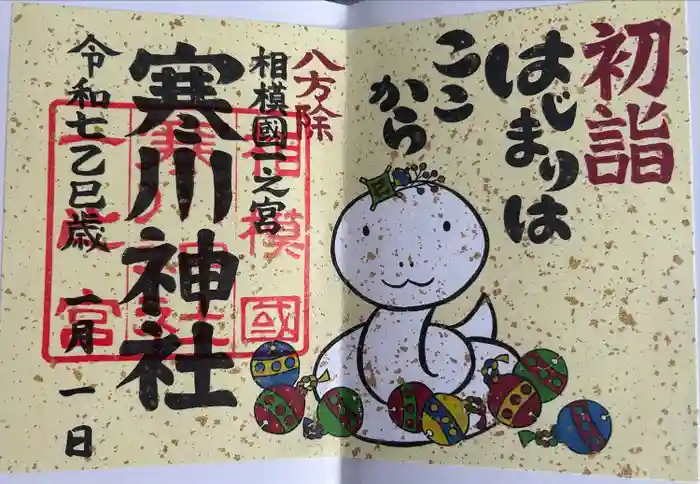 初詣
はじまりは
ここ
から
八方除
相模國一之宮
寒川神社
令和七乙巳歳 一月一日
相模國
一之宮